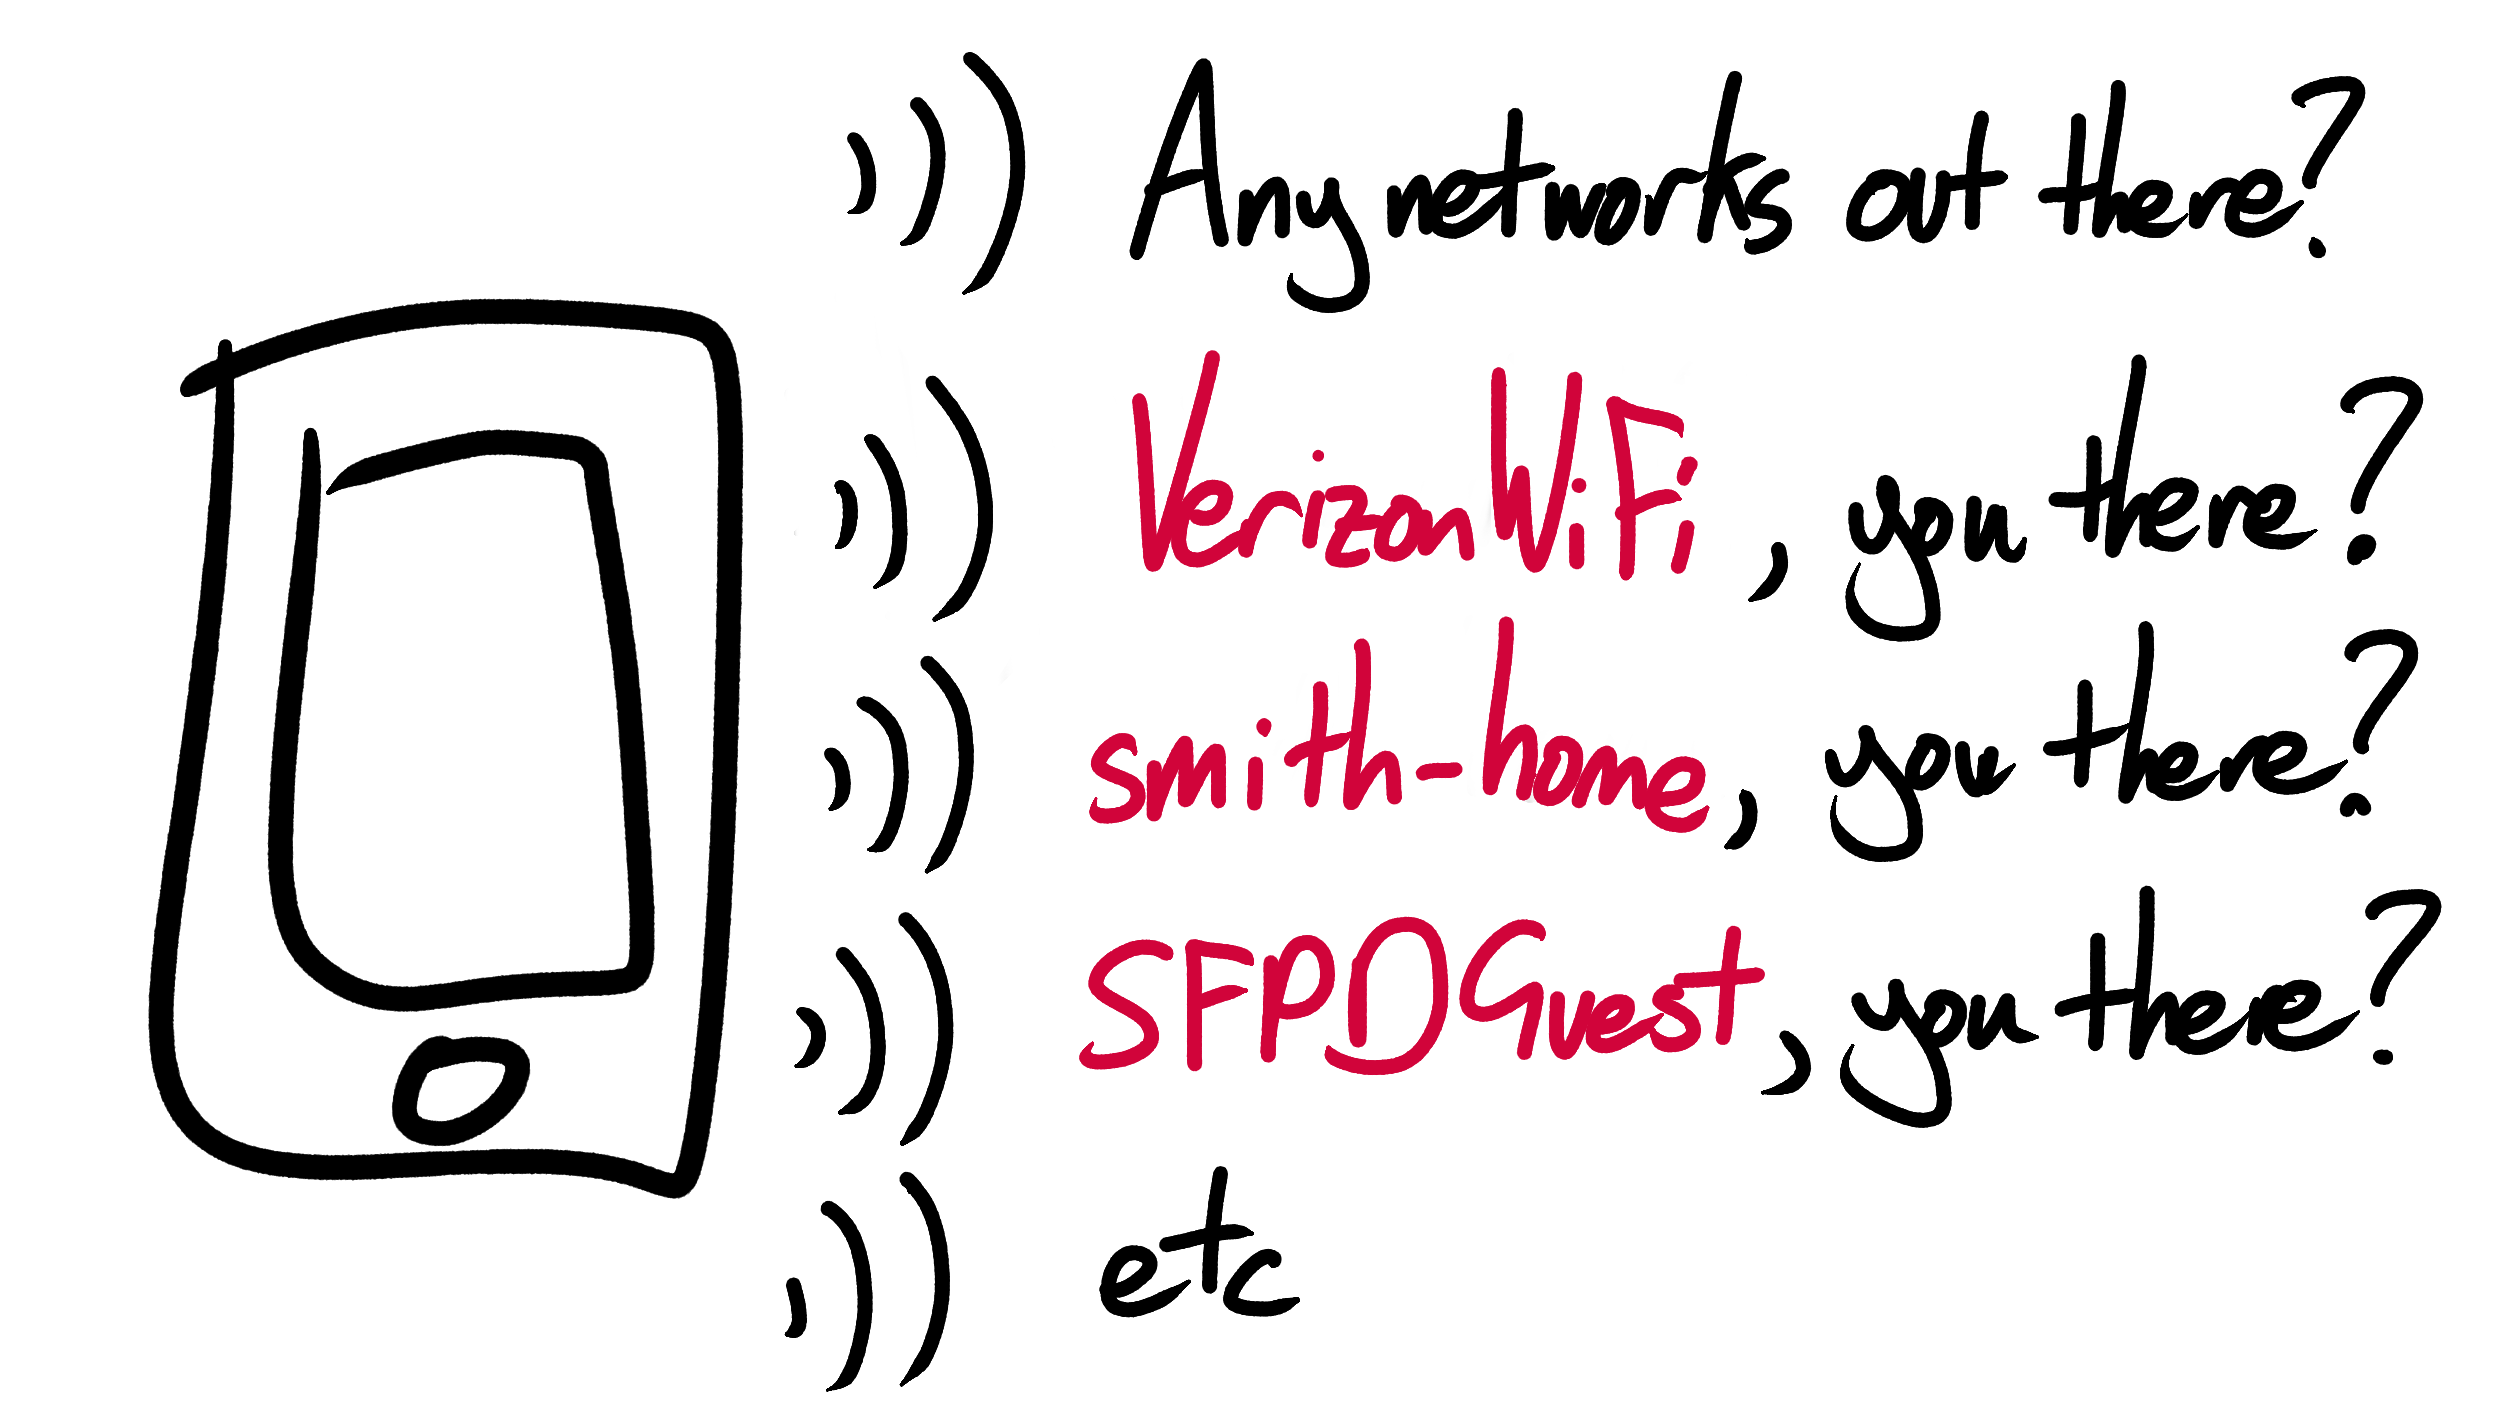 Any networks out there?
VerizonWiFi, you there?
smith-home, you there?
SFPD Guest, you there?
etc